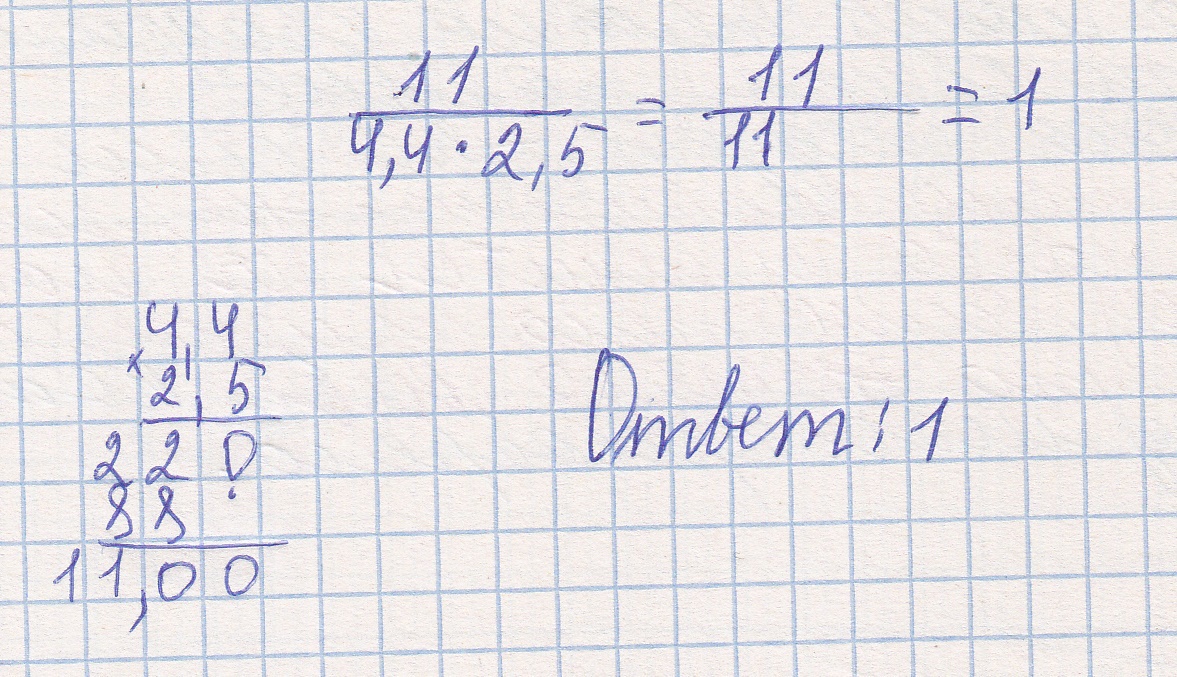 11
4,4 · 2,5 = 11
11 = 1
4,4
× 2,5
220
88·
11,00
Ответ: 1